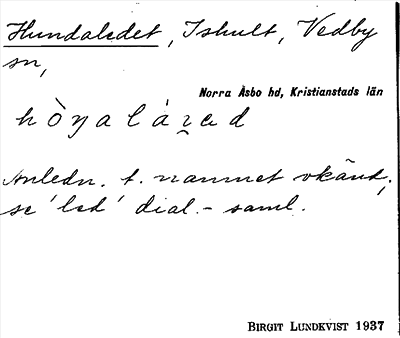 Hundaledet, Ishult, Vedby
sn,
Norra Åsbo hd, Kristianstads län
Anledn. t. namnet okänd,
se 'led' dial.- saml.
BIRGIT LUNDKVIST 1937